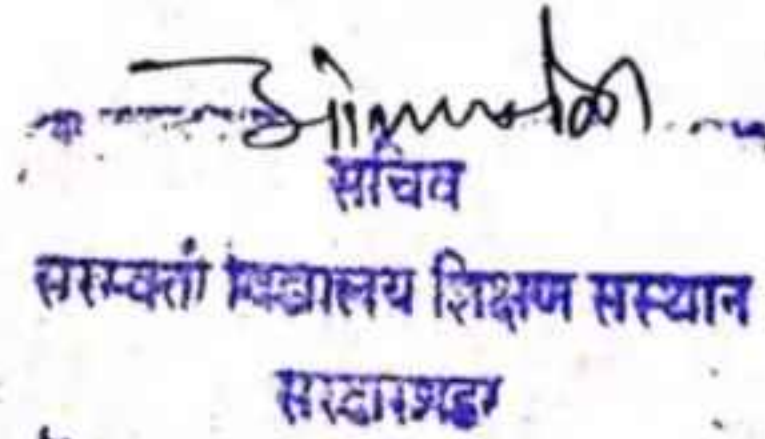 सचिव
सरस्वती विद्यालय शिक्षण सस्थान
सरदारशहर